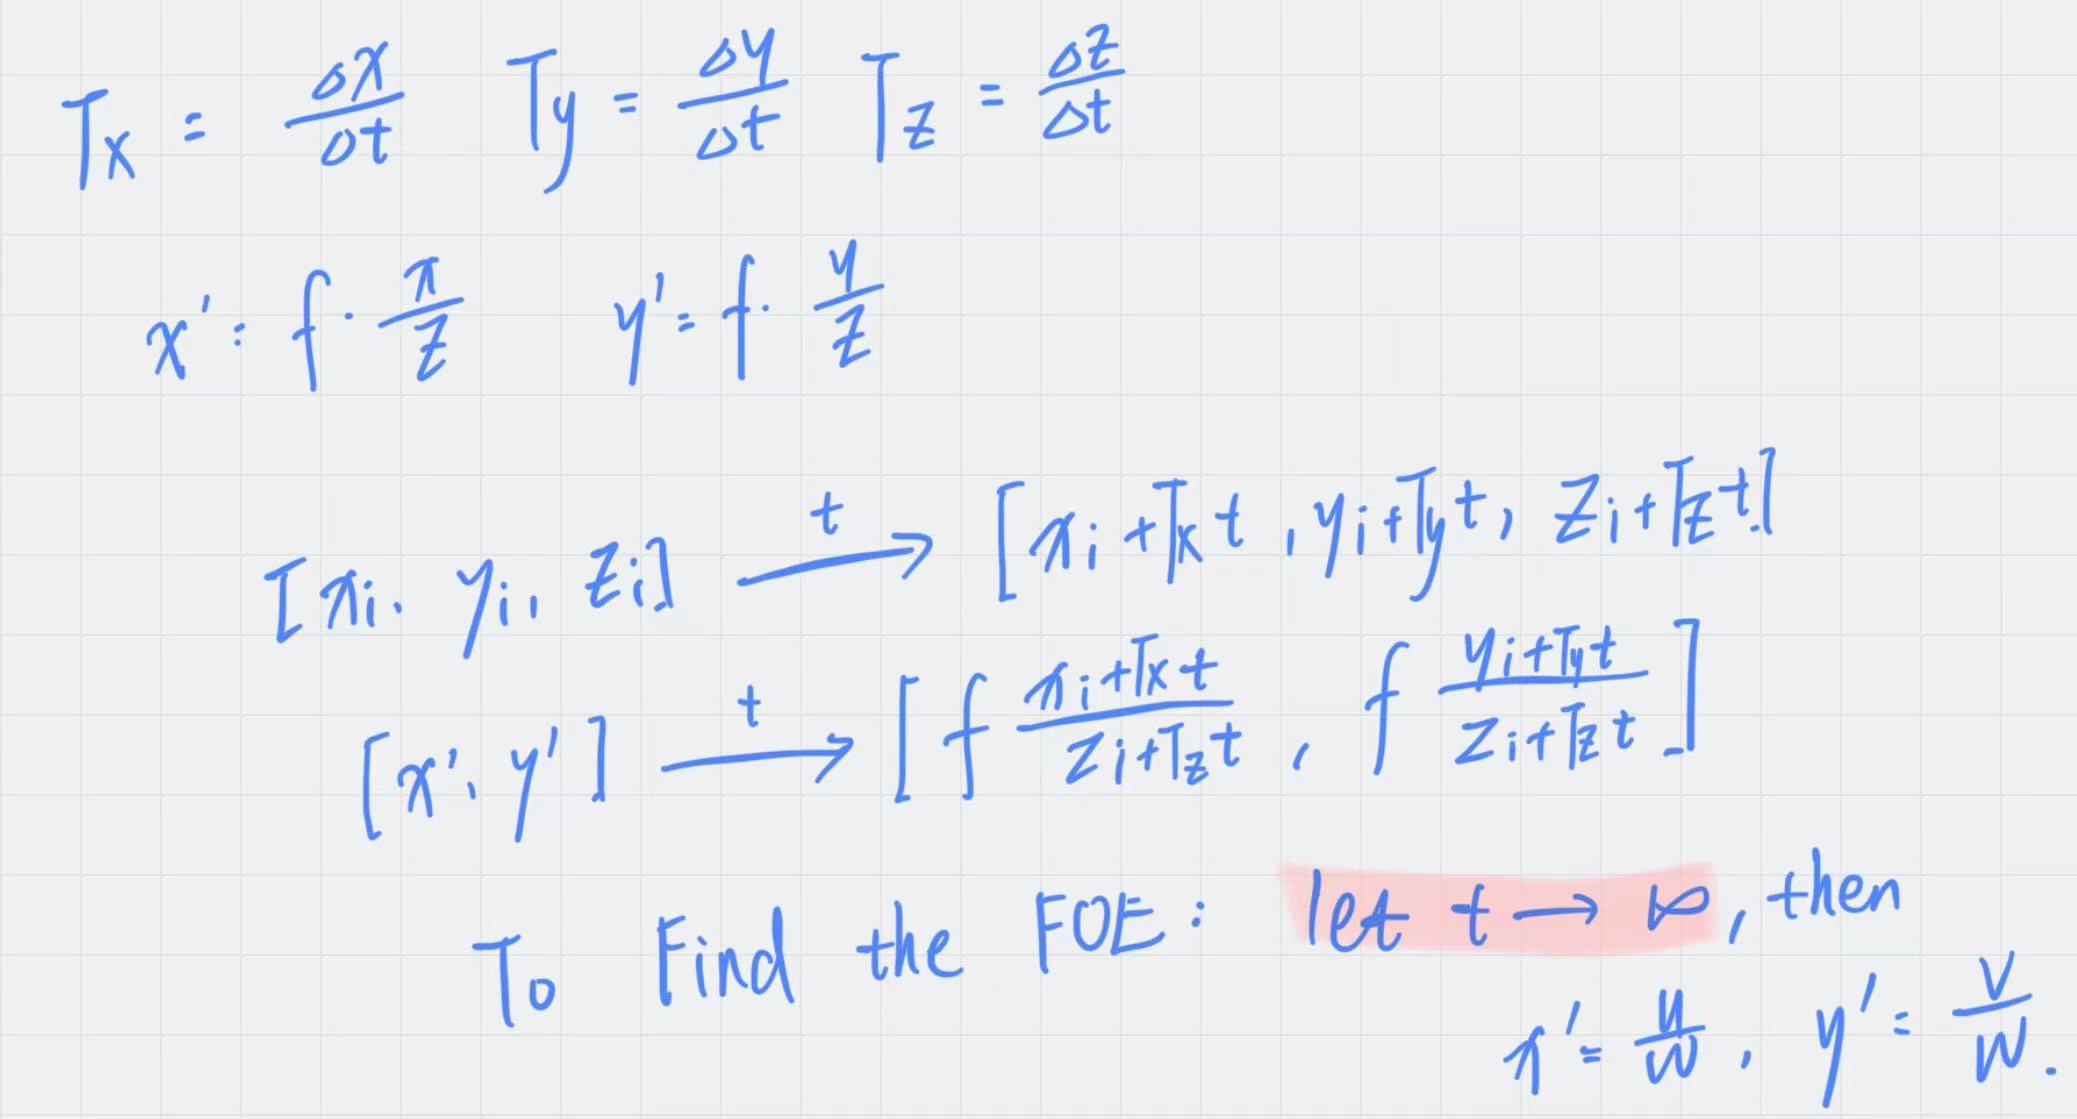 Tx = Δx/Δt Ty = Δy/Δt Tz = Δz/Δt
x' = f · x/z y' = f · y/z
[xi, yi, zi] —t→ [xi+Tx t, yi+Ty t, zi+Tz t]
[x', y'] —t→ [f (xi+Tx t)/(zi+Tz t), f (yi+Ty t)/(zi+Tz t)]
To Find the FOE: let t → ∞, then
x' = u/w, y' = v/w.